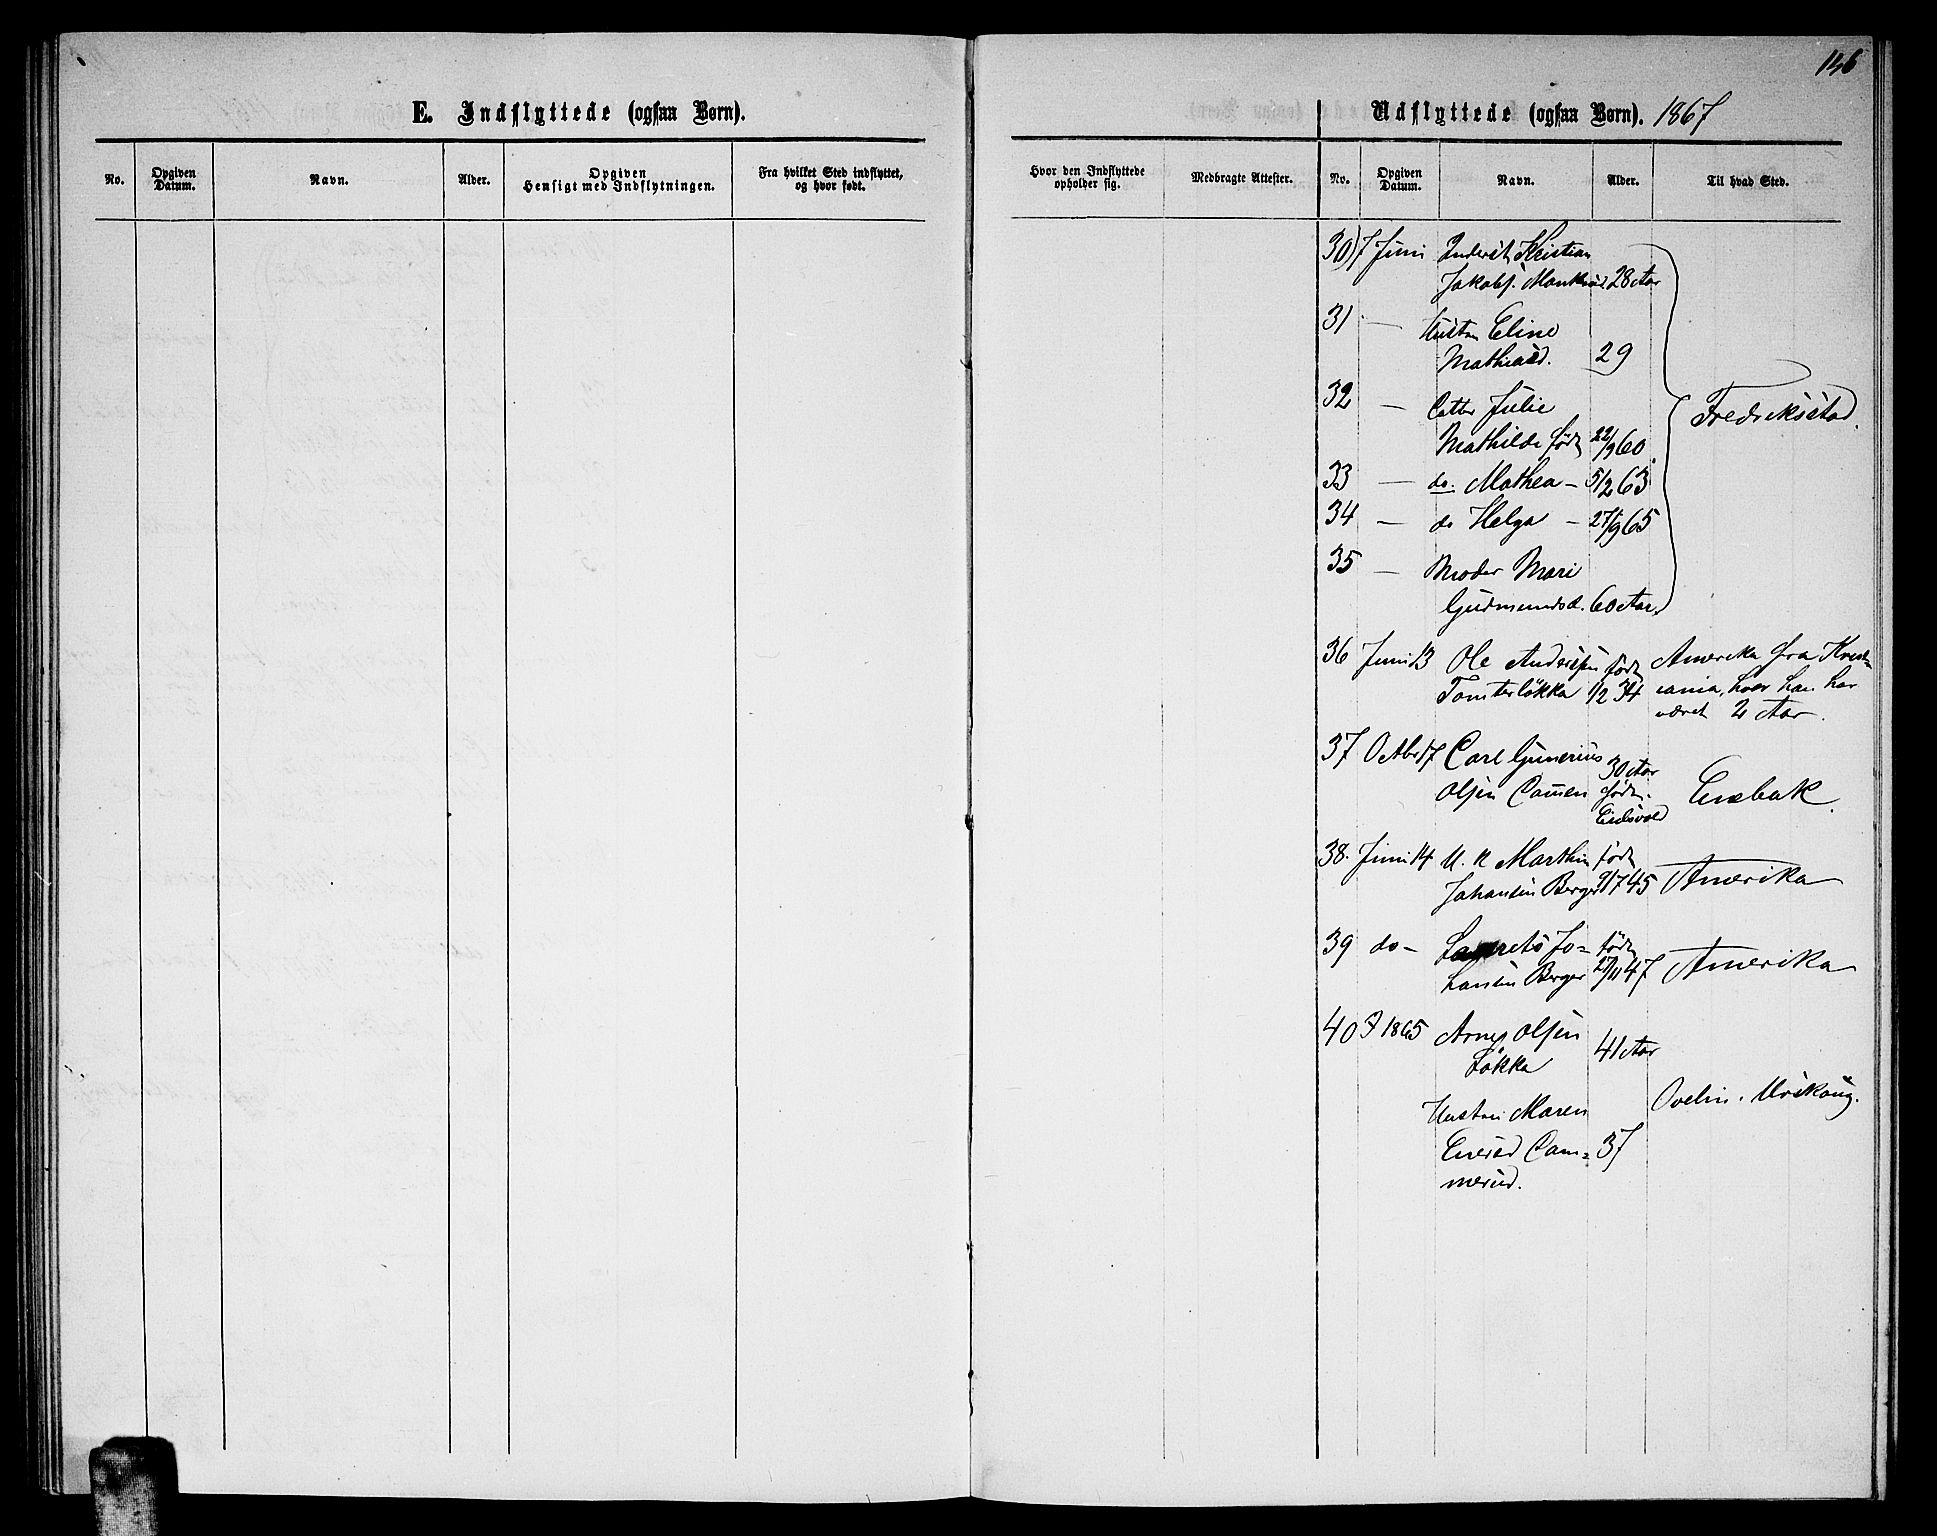 146
E. Indflyttede (ogsaa Børn).
Udflyttede (ogsaa Børn). 1867
No.
Opgiven
Datum.
Navn.
Alder.
Opgiven
Hensigt med Indflytningen.
Fra hvilket Sted indflyttet,
og hvor født.
Hvor den Indflyttede
opholder sig.
Medbragte Attester.
No.
Opgiven
Datum.
Navn.
Alder.
Til hvad Sted.
30) 7 Juni Inderst Kristian
Jakobs. 28 Aar
31 — Hustru Eline
Mathiasd. 29
32 — Datter Julie
Mathilde født 22/9 60
Fredriksstad.
33 — do. Mathea — 5/2 63
34 — do Helga — 27/9 65
35 — Moder Mari
Gudmundsd. 60 Aar.
36 Juni 13 Ole Andersen født Amerika fra Krist-
Tomterløkka 1/2 34 iania, hvor han har
været 2 Aar.
37 Octbr 17 Carl Gunerius 30 Aar
Olsen født. Enebak.
Eidsvold
38. Juni 14 U. K Marthin født
Johansen Berger 7 45 Amerika
39 do — Jo= født
hansen Berger 11 47 Amerika
40 1865 Arne Olsen
Løkka 41 Aar
Hustru Maren Urskoug.
37
merud.